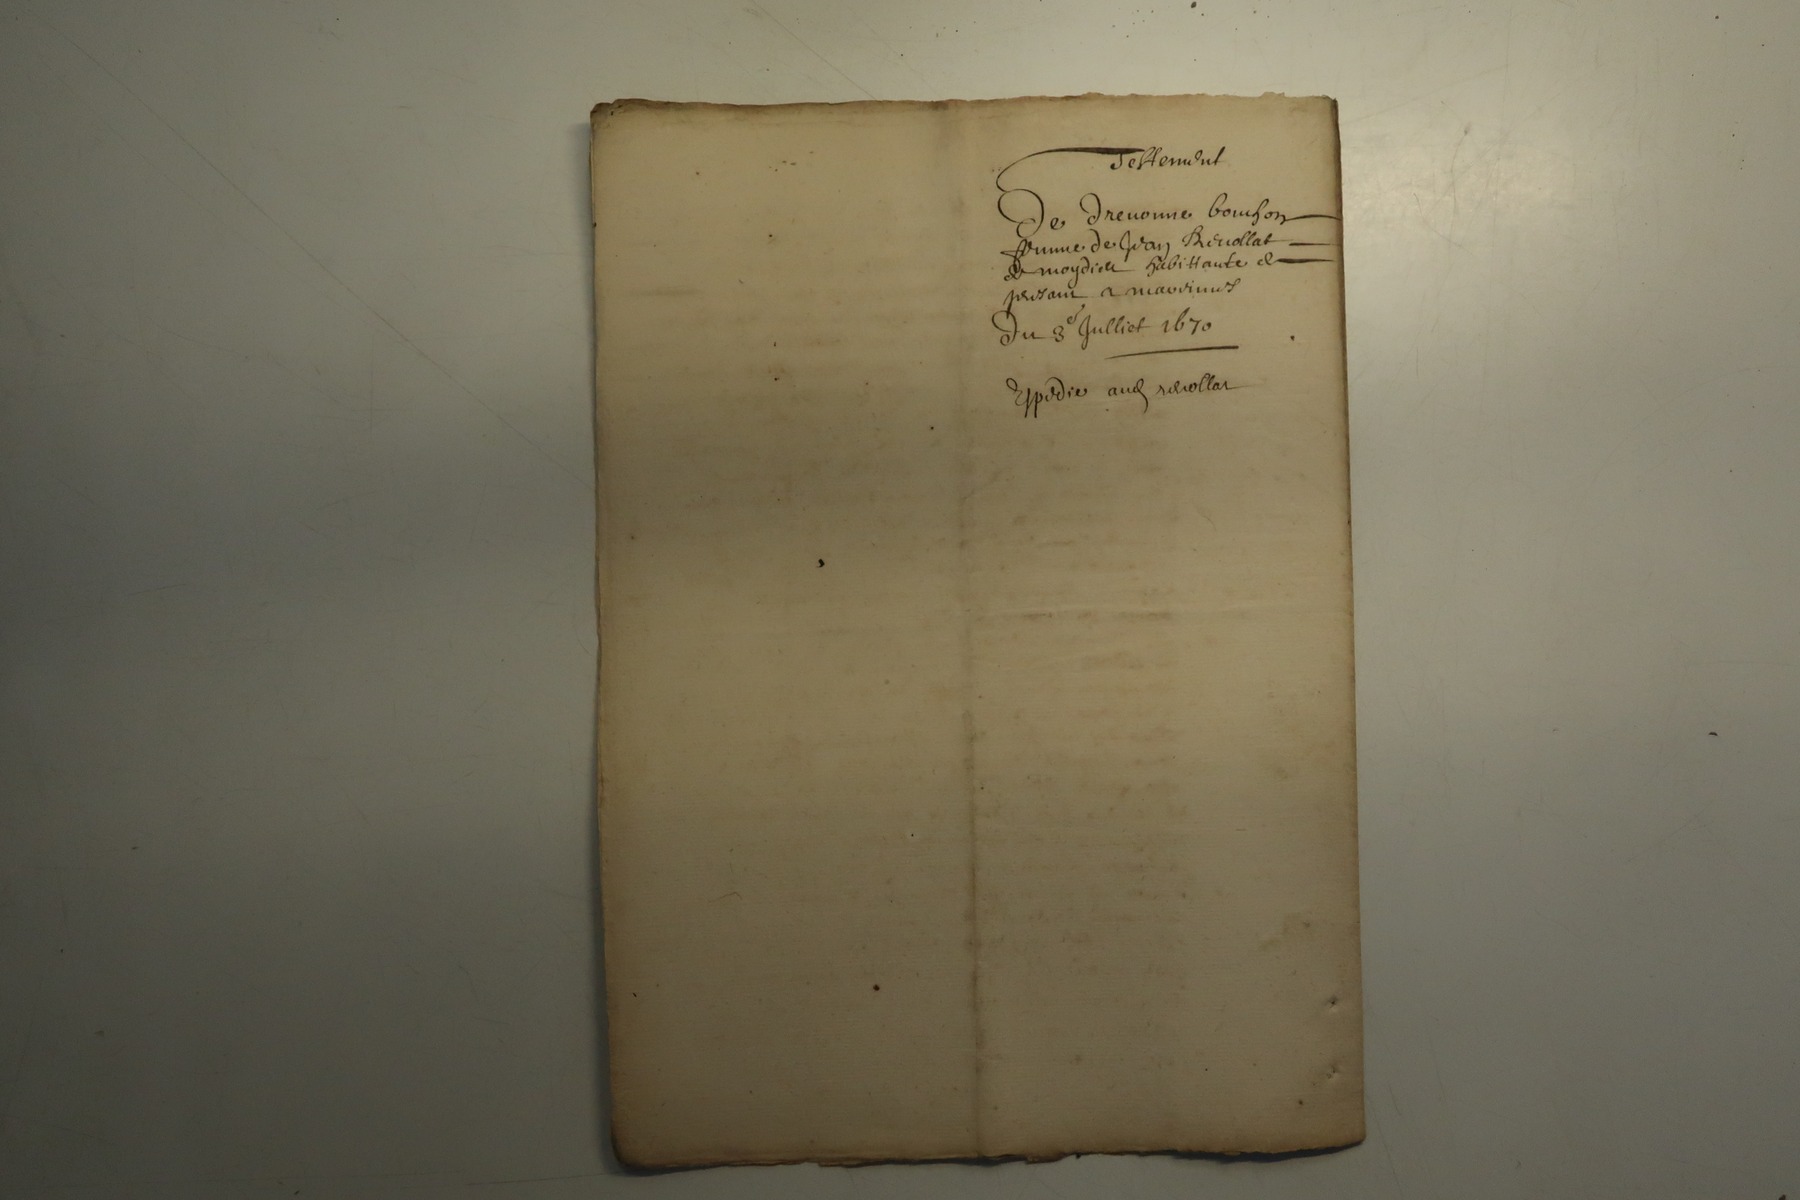 Testement
De Drevonne bouchon
femme de Jean Revollat
de moydieu habittante &
Du 3e Julliet 1670
Expedie aud revollat